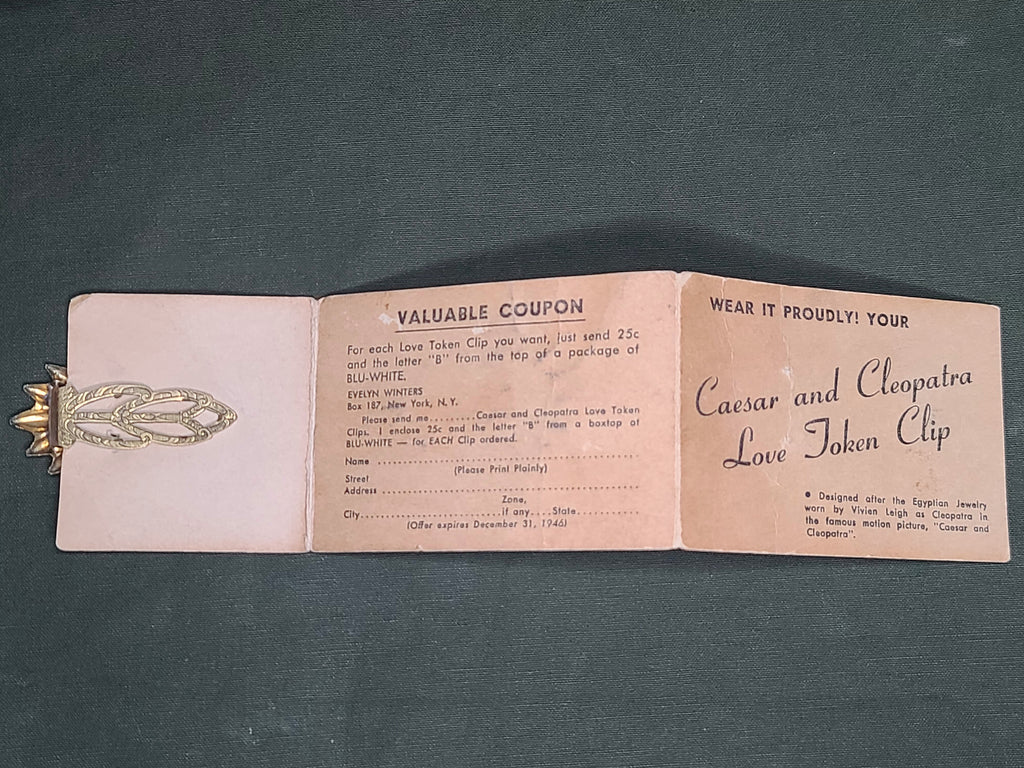 VALUABLE COUPON
For each Love Token Clip you want, just send 25c
and the letter "B" from the top of a package of
BLU-WHITE.
EVELYN WINTERS
Box 187, New York, N. Y.
Please send me.........Caesar and Cleopatra Love Token
Clips. I enclose 25c and the letter "B" from a boxtop of
BLU-WHITE — for EACH Clip ordered.
Name ....................................................
(Please Print Plainly)
Street
Address ....................................................
Zone,
City............................if any....State............
(Offer expires December 31, 1946)
WEAR IT PROUDLY! YOUR
Caesar and Cleopatra
Love Token Clip
• Designed after the Egyptian Jewelry
worn by Vivien Leigh as Cleopatra in
the famous motion picture, "Caesar and
Cleopatra".